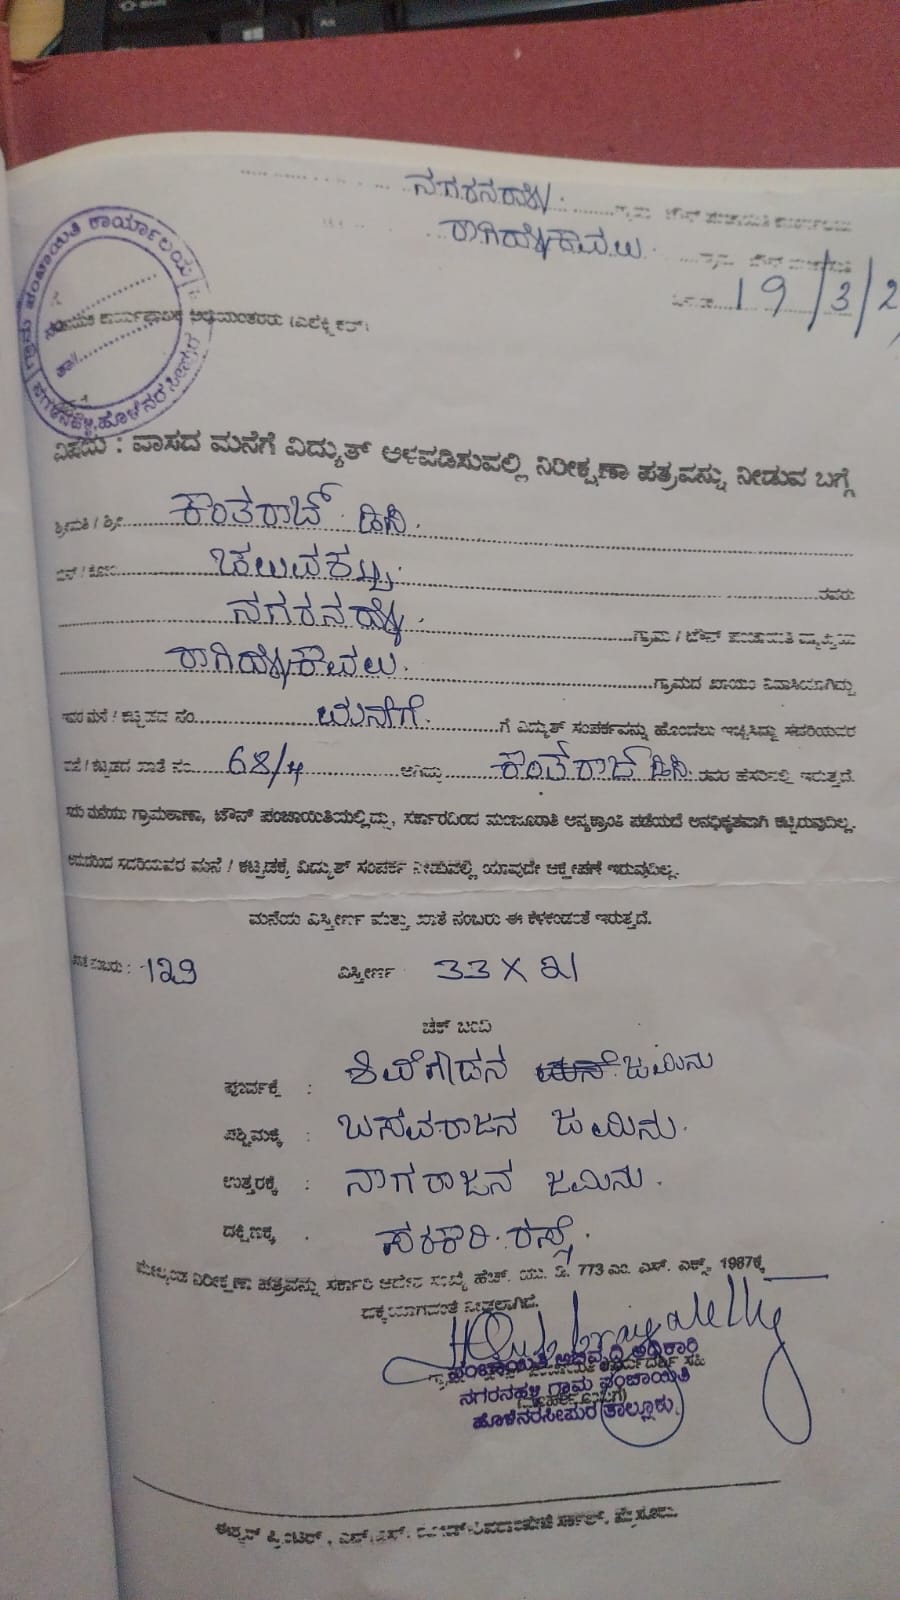 ನಗರನಹಳ್ಳಿ
ರಾಗಿಹಳ್ಳಿಕಾವಲು
19/3/2
ಗ್ರಾಮ ಪಂಚಾಯಿತಿ ಕಾರ್ಯಾಲಯ
ನಗರನಹಳ್ಳಿ, ಹೊಳೆನರಸೀಪುರ
ವಿಷಯ : ವಾಸದ ಮನೆಗೆ ವಿದ್ಯುತ್ ಅಳವಡಿಸುವಲ್ಲಿ ನಿರೀಕ್ಷಣಾ ಪತ್ರವನ್ನು ನೀಡುವ ಬಗ್ಗೆ
ಶ್ರೀಮತಿ / ಶ್ರೀ ಕಾಂತರಾಜ್
ರವರು
ನಗರನಹಳ್ಳಿ ಗ್ರಾಮ / ಟೌನ್ ಪಂಚಾಯಿತಿ
ರಾಗಿಹಳ್ಳಿಕಾವಲು. ಗ್ರಾಮದ ಖಾಯಂ ನಿವಾಸಿಯಾಗಿದ್ದು
ಇವರ ಮನೆ / ಕಟ್ಟಡದ ನಂ. ಮನೆಗೆ. ಗೆ ವಿದ್ಯುತ್ ಸಂಪರ್ಕವನ್ನು ಹೊಂದಲು ಇಚ್ಛಿಸಿದ್ದು ಸದರಿಯವರ
ಮನೆ / ಕಟ್ಟಡದ ಖಾತೆ ನಂ. 68/4 ಆಗಿದ್ದು ಕಾಂತರಾಜ್ ರವರ ಹೆಸರಿನಲ್ಲಿ ಇರುತ್ತದೆ.
ಸದರಿ ಮನೆಯು ಗ್ರಾಮಠಾಣಾ, ಟೌನ್ ಪಂಚಾಯಿತಿಯಲ್ಲಿದ್ದು, ಸರ್ಕಾರದಿಂದ ಮಂಜೂರಾತಿ ಪಡೆಯದೆ ಅನಧಿಕೃತವಾಗಿ ಕಟ್ಟಿರುವುದಿಲ್ಲ.
ಆದುದರಿಂದ ಸದರಿಯವರ ಮನೆ / ಕಟ್ಟಡಕ್ಕೆ ವಿದ್ಯುತ್ ಸಂಪರ್ಕ ನೀಡುವಲ್ಲಿ ಯಾವುದೇ ಆಕ್ಷೇಪಣೆ ಇರುವುದಿಲ್ಲ.
ಮನೆಯ ವಿಸ್ತೀರ್ಣ ಮತ್ತು ಖಾತೆ ನಂಬರು ಈ ಕೆಳಕಂಡಂತೆ ಇರುತ್ತದೆ.
ಖಾತೆ ನಂಬರು : 129 ವಿಸ್ತೀರ್ಣ 33 X 21
ಚಕ್ ಬಂದಿ
ಪೂರ್ವಕ್ಕೆ : ಶಿವೇಗೌಡನ ಜಮೀನು
ಪಶ್ಚಿಮಕ್ಕೆ : ಬಸವರಾಜನ ಜಮೀನು.
ಉತ್ತರಕ್ಕೆ : ನಾಗರಾಜನ ಜಮೀನು.
ದಕ್ಷಿಣಕ್ಕೆ : ಸರಕಾರಿ ರಸ್ತೆ.
ಮೇಲ್ಕಂಡ ನಿರೀಕ್ಷಣಾ ಪತ್ರವನ್ನು ಸರ್ಕಾರಿ ಆದೇಶ ಸಂಖ್ಯೆ ಹೆಚ್. ಯು. ಡಿ. 773 ಎಂ. ಎಸ್. ಎಕ್ಸ್. 1987ಕ್ಕೆ
ನೀಡಲಾಗಿದೆ.
ಪಂಚಾಯಿತಿ ಅಭಿವೃದ್ಧಿ ಅಧಿಕಾರಿ
ನಗರನಹಳ್ಳಿ ಗ್ರಾಮ ಪಂಚಾಯಿತಿ
ಹೊಳೆನರಸೀಪುರ ತಾಲ್ಲೂಕು.